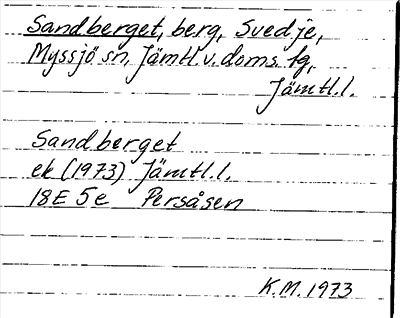 Sandberget, berg, Svedje,
Myssjö sn, Jämtl. v. doms. tg,
Jämtl. l.
Sandberget
ek (1973) Jämtl. l.
18E 5e Persåsen
K.M. 1973